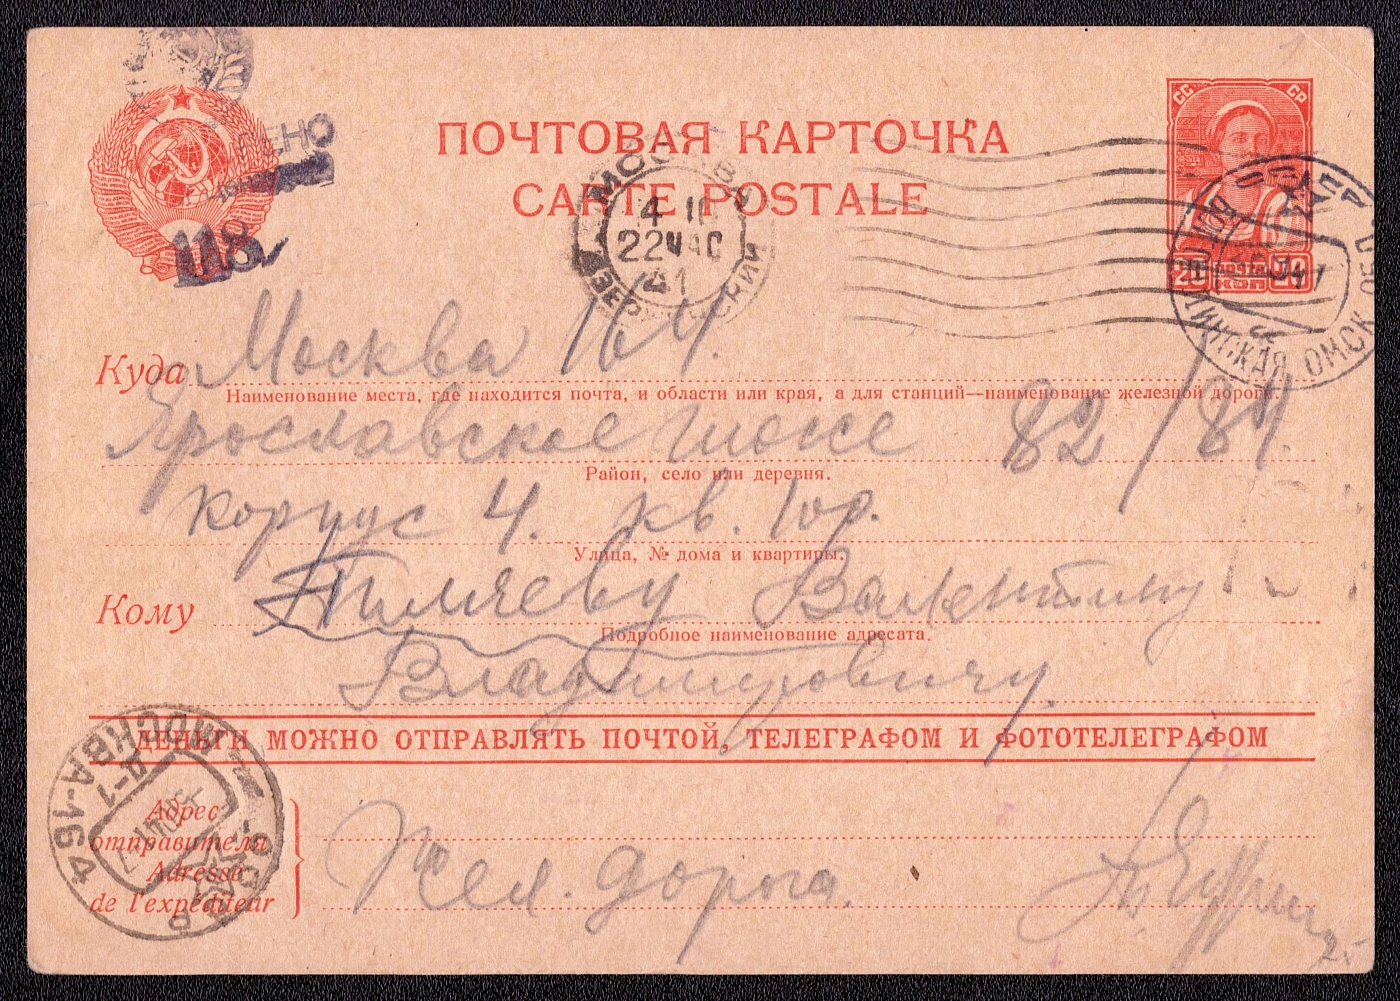 ПОЧТОВАЯ КАРТОЧКА
CARTE POSTALE
СС СР
20 ПОЧТА КОП 20
118
МОСКВА
22 ЧАС
41
Куда Москва 164.
Наименование места, где находится почта, и области или края, а для станций—наименование железной дороги.
Ярославское шоссе 82/84.
Район, село или деревня.
корпус 4. кв. 102.
Улица, № дома и квартиры.
Кому Валентину
Подробное наименование адресата.
Владимировичу.
ДЕНЬГИ МОЖНО ОТПРАВЛЯТЬ ПОЧТОЙ, ТЕЛЕГРАФОМ И ФОТОТЕЛЕГРАФОМ
МОСКВА-164
Д-1
Адрес
отправителя
Adresse
de l'expéditeur
Жел. дорога.